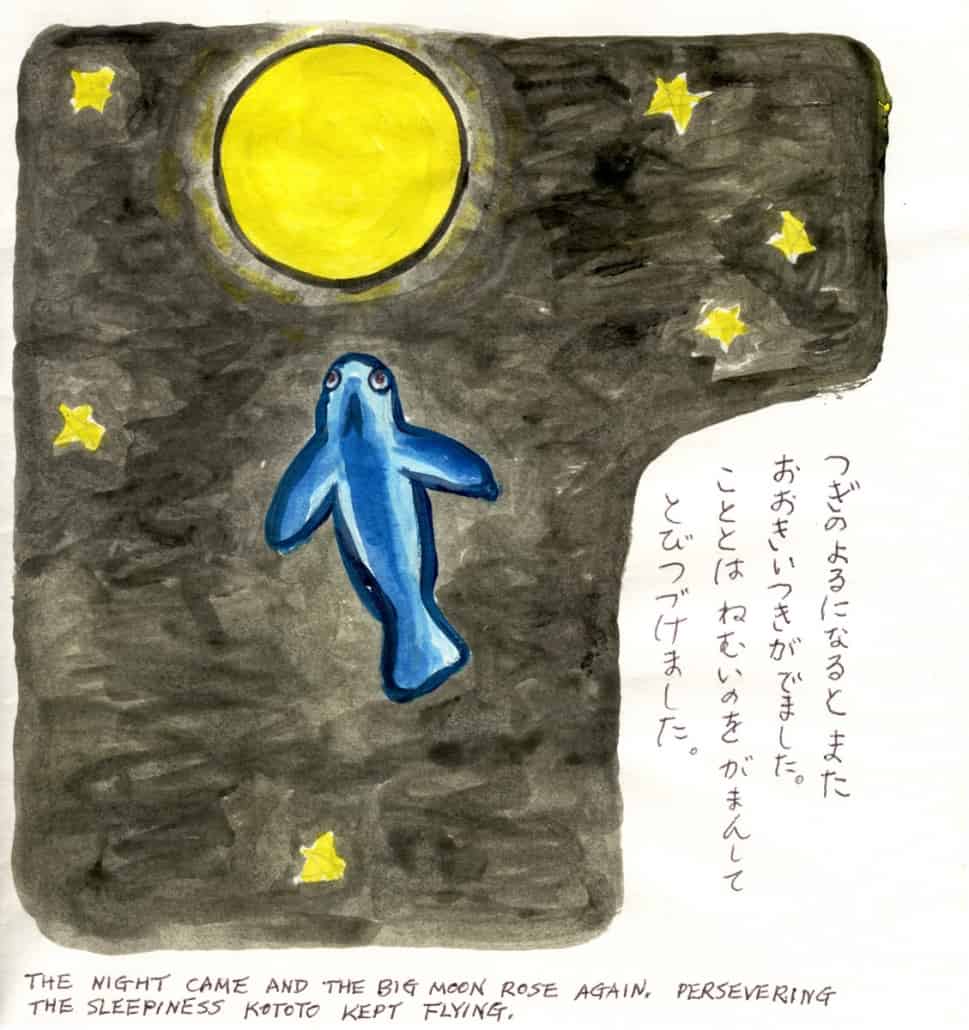 つぎのよるになると また
おおきいつきがでました。
こととは ねむいのを がまんして
とびつづけました。
THE NIGHT CAME AND THE BIG MOON ROSE AGAIN. PERSEVERING
THE SLEEPINESS KOTOTO KEPT FLYING.